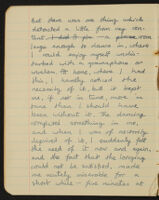 But there was one thing which
detracted a little from my con-
tent. I had to join a
large enough to dance in, where
I could enjoy myself undis-
turbed with a gramophone or
wireless. At home, where I had
this, I hardly noticed the
necessity of it, but it kept
me, if not in tune, more in
tune than I should have
been without it. The dancing
completed something in me,
and when I was of necessity
deprived of it, I suddenly felt
the need of it now and again,
and the fact that the longing
could not be satisfied, made
me acutely miserable for a
short while - five minutes at